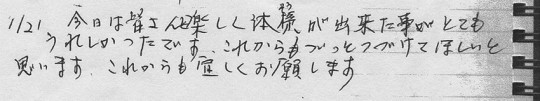 1/21 今日は皆さん楽しく体操が出来た事がとても
うれしかったです。これからもづっとつづけてほしいと
思います。これからも宜しくお願します